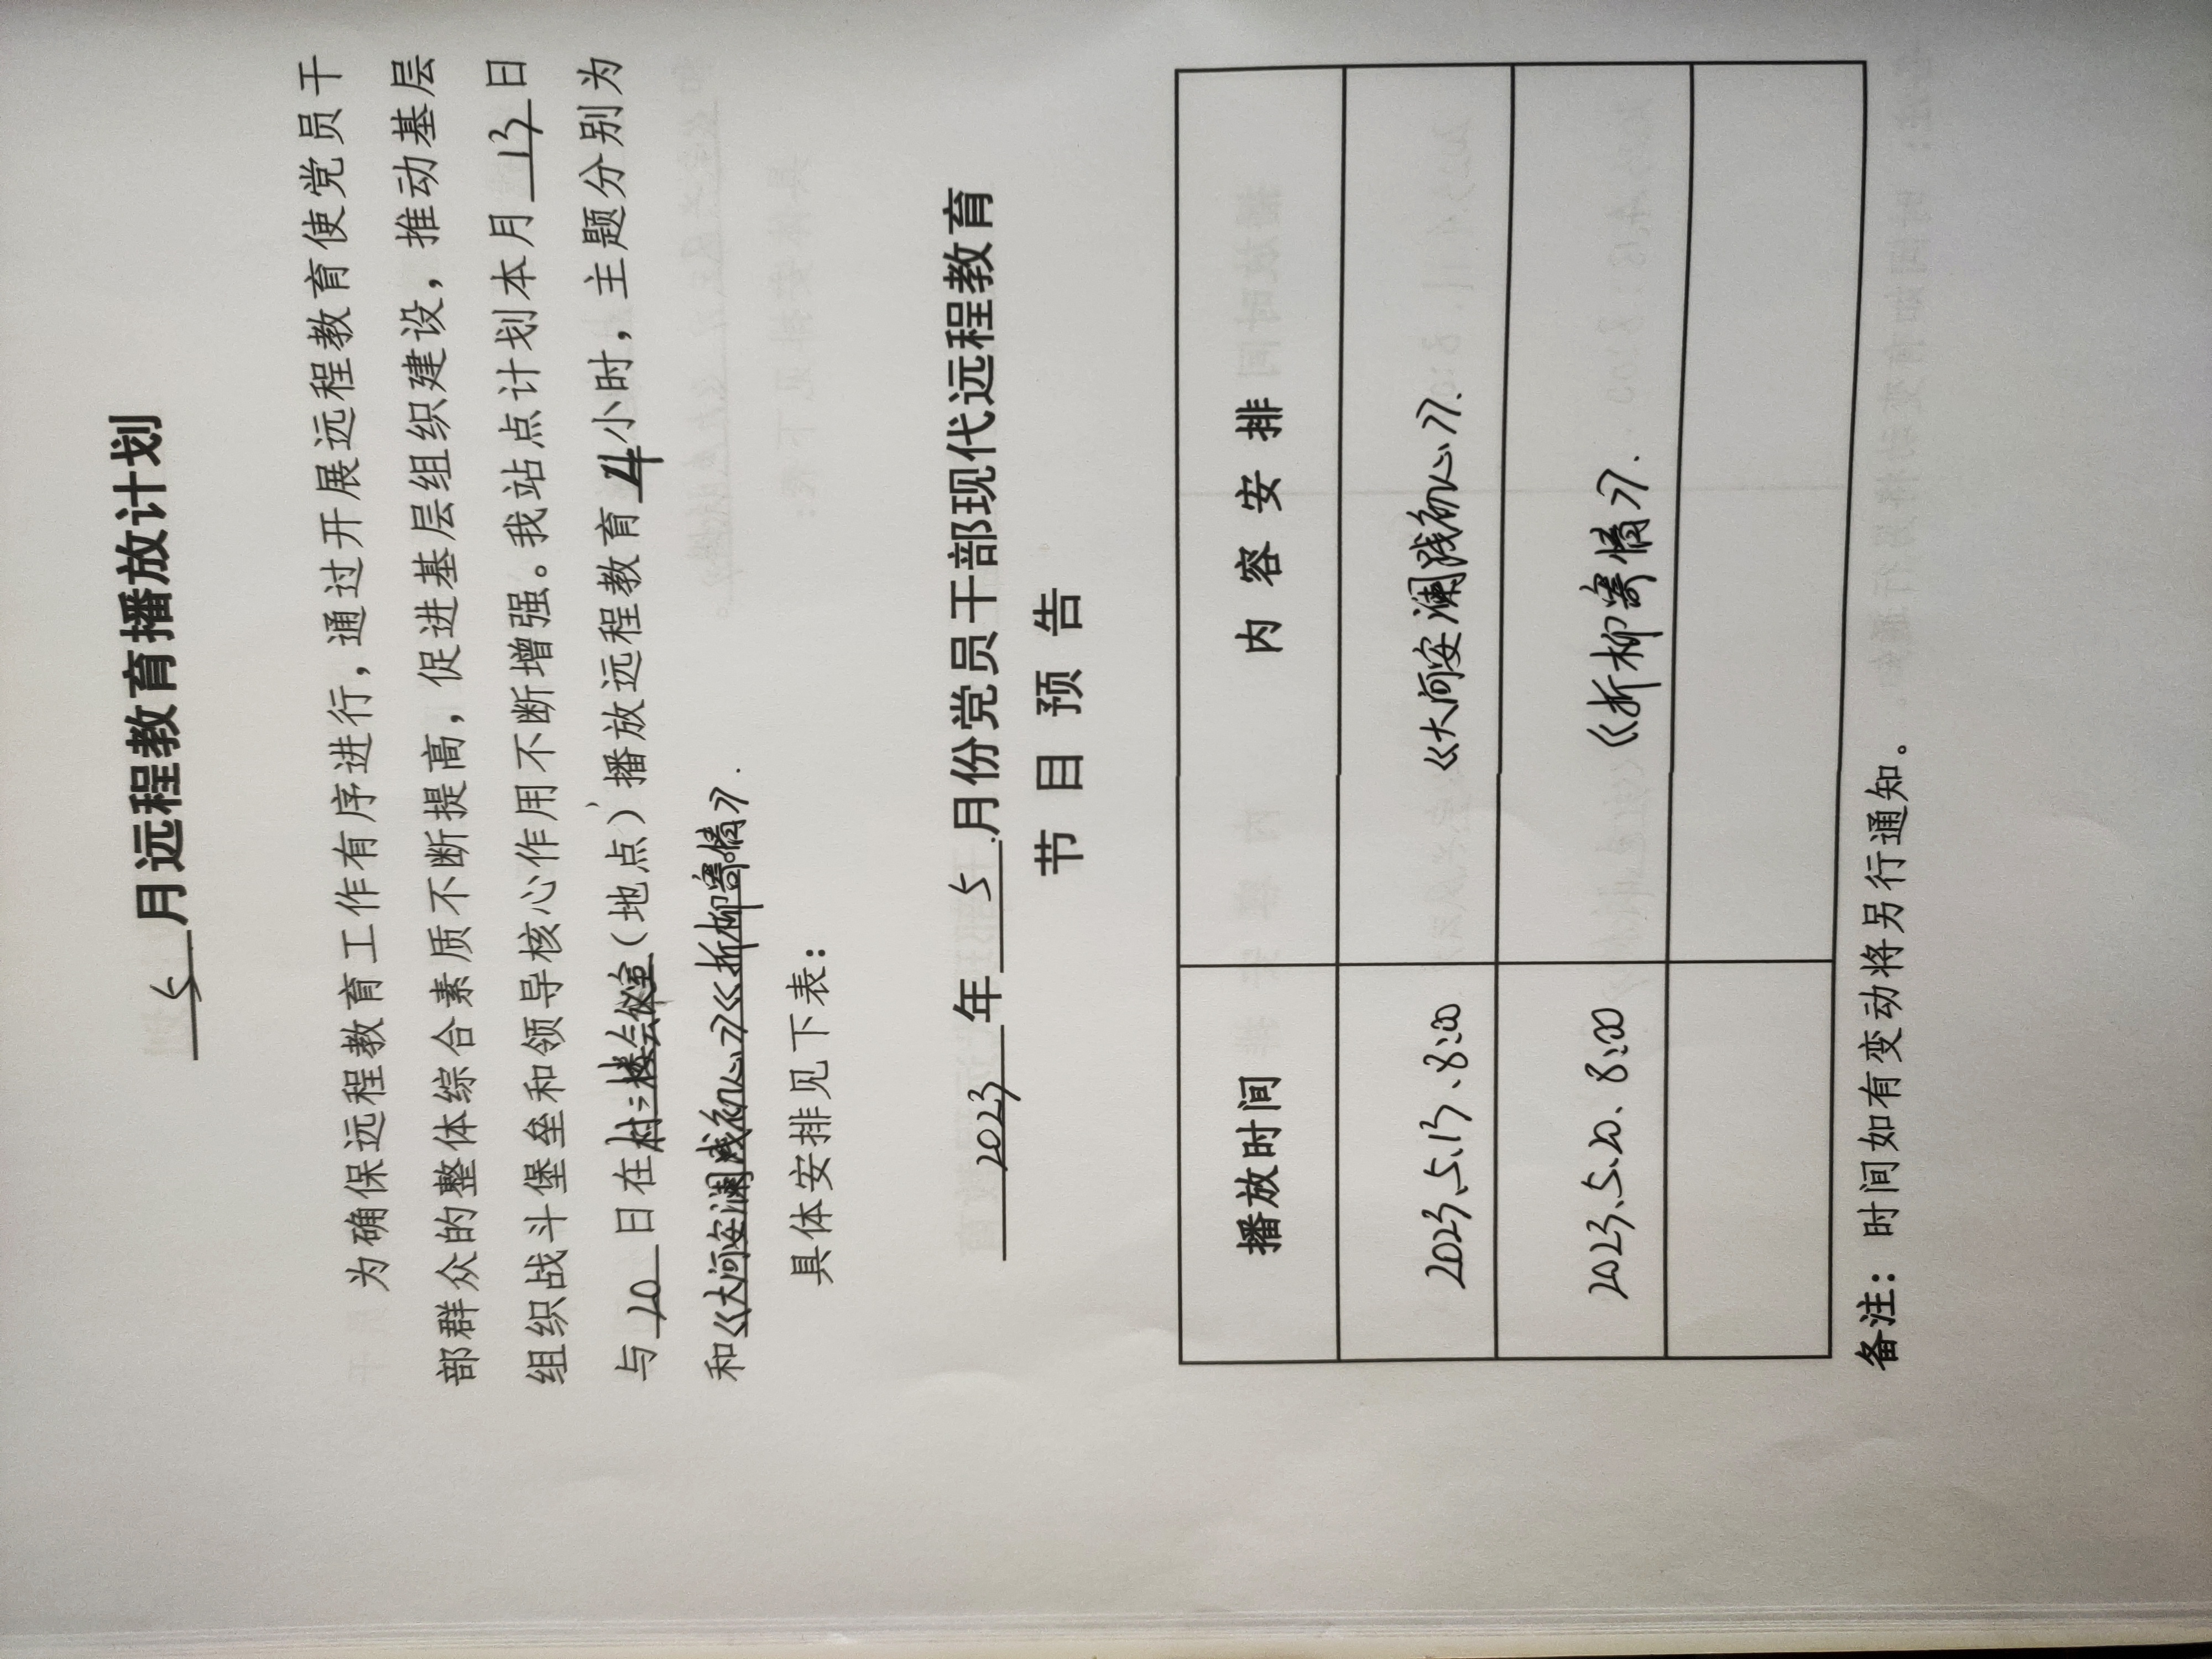 5月远程教育播放计划
为确保远程教育工作有序进行，通过开展远程教育使党员干
部群众的整体综合素质不断提高，促进基层组织建设，推动基层
组织战斗堡垒和领导核心作用不断增强。我站点计划本月 13 日
与 20 日在村二楼会议室（地点）播放远程教育 4 小时，主题分别为
和《大河安澜践初心》《折柳寄情》.
具体安排见下表：
2023 年 5 月份党员干部现代远程教育
节 目 预 告
播放时间 内 容 安 排
2023、5、13、8:00 《大河安澜践初心》.
2023、5、20、8:00 《折柳寄情》.
备注：时间如有变动将另行通知。